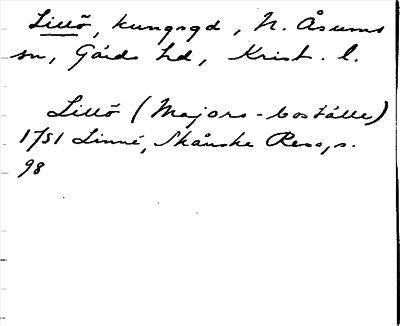 Lillö, kungsgd, N. Åsums
sn, Gärds hd, Krist. l.
Lillö (Majors-boställe)
1751 Linné, Skånske Resa, s.
98